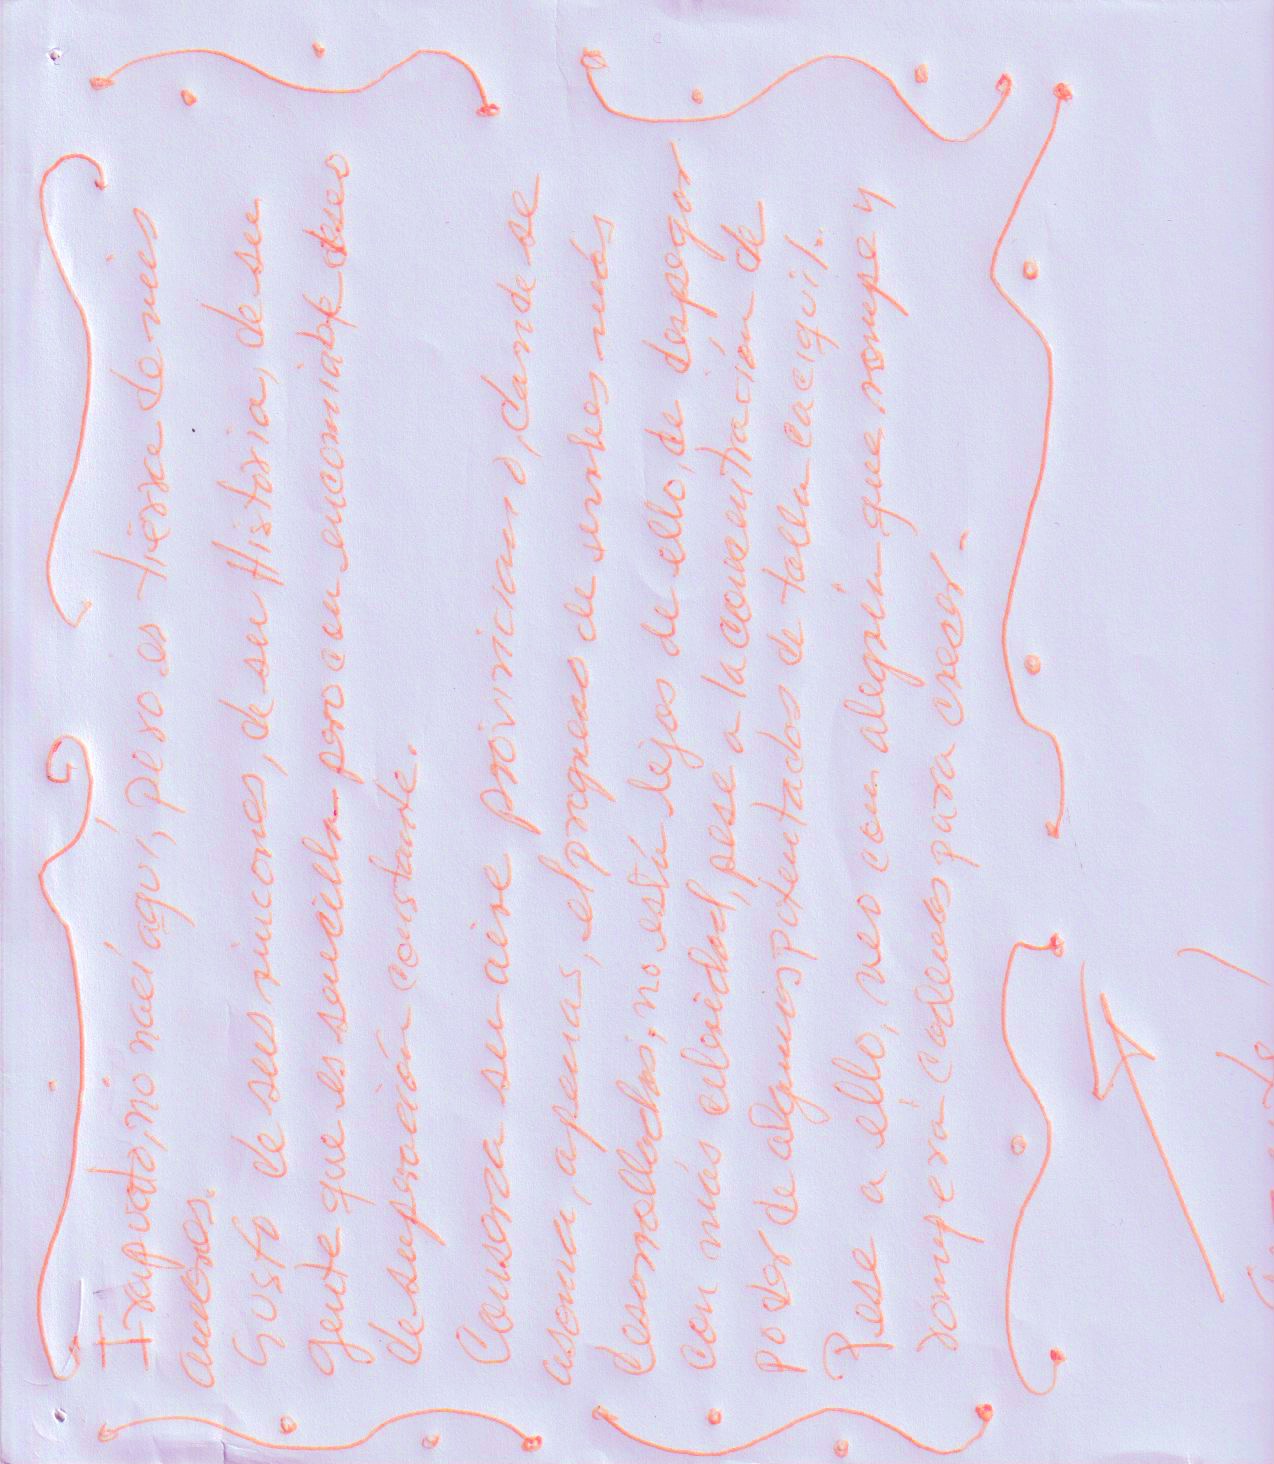 Irapuato, no nací aquí, pero es tierra de mis
amores.
Gusto de sus rincones, de su Historia, de su
gente que es sencilla pero con encomiable deseo
de superación constante.
Conserva su aire provinciano, donde se
asoma, apenas, el progreso de urbes más
desarrolladas; no está lejos de ello, de despegar
con más celeridad, pese a la concentración de
poder de algunos potentados de talla caciquil.
Pese a ello, veo con alegría que rompe y
romperá cadenas para crecer.-